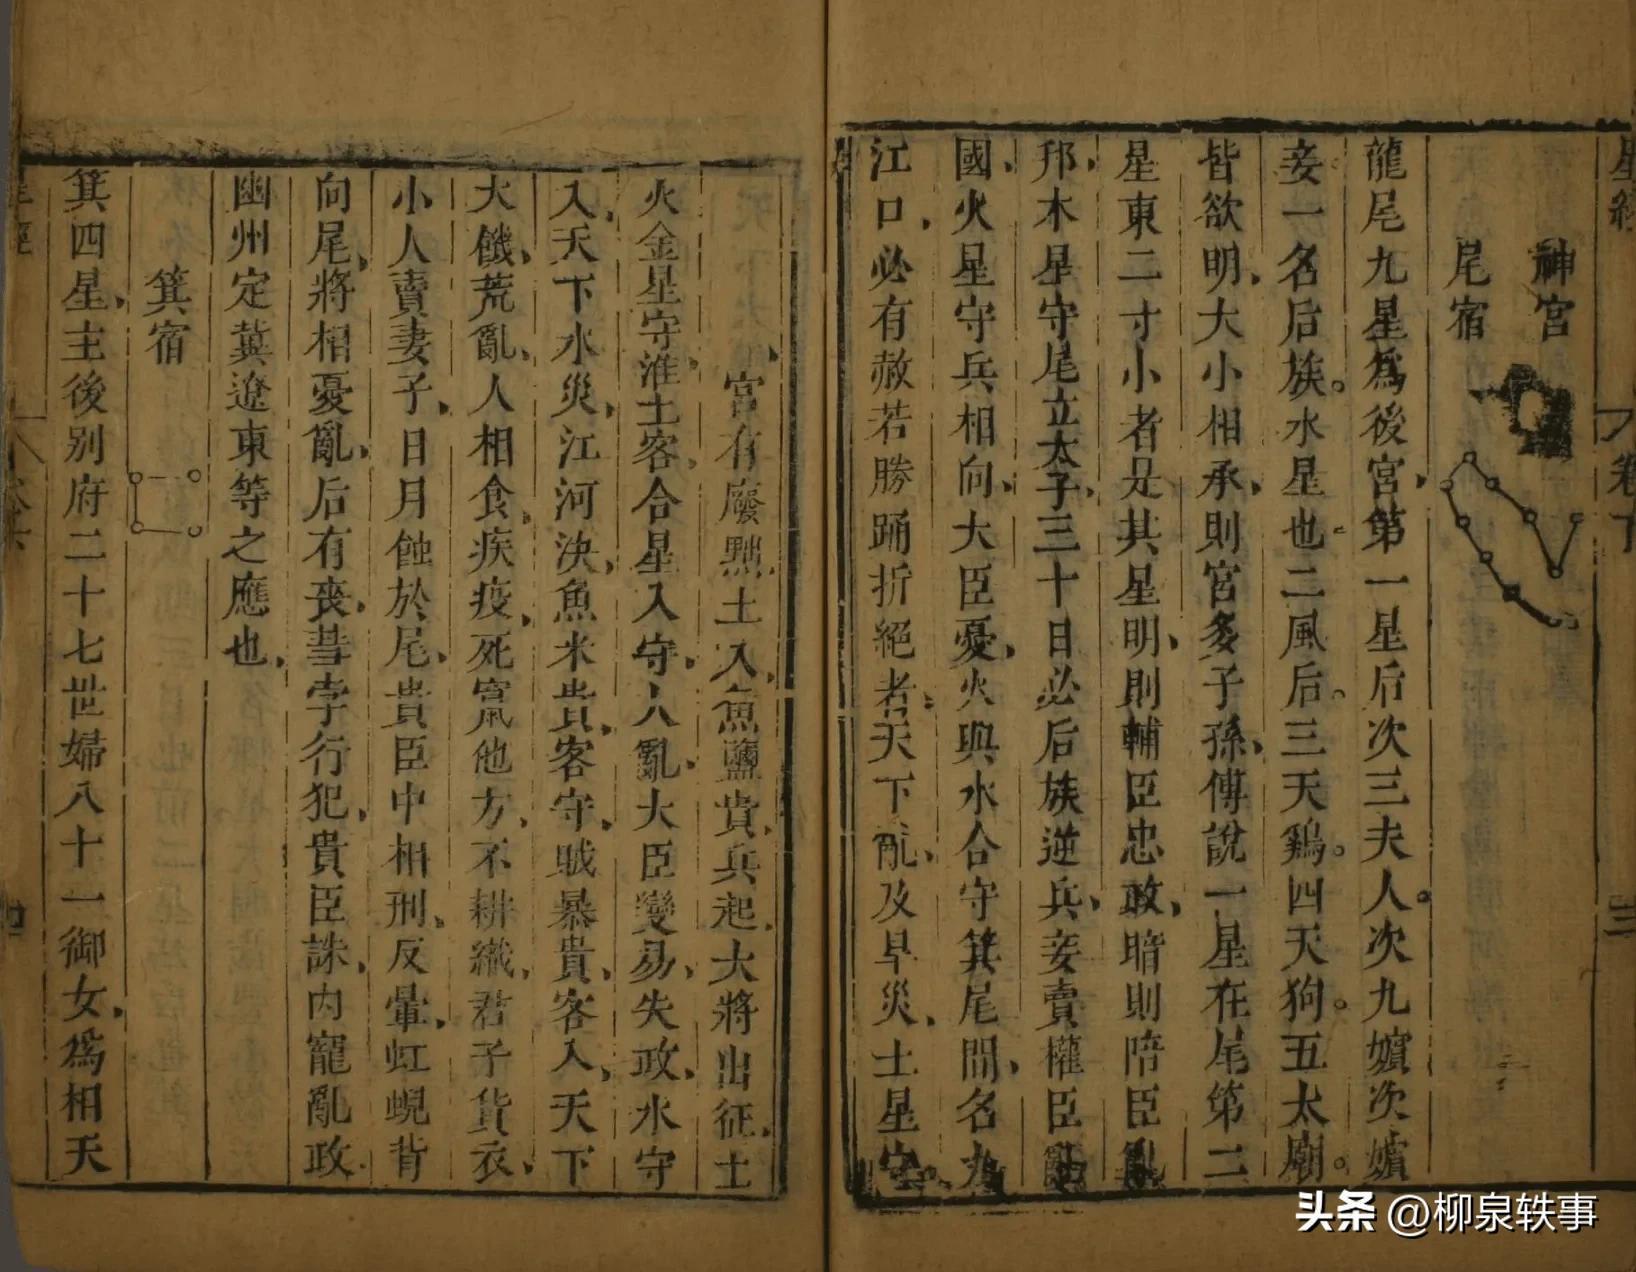 星經 卷下 三
神宮
尾宿
龍尾九星爲後宮第一星后次三夫人次九嬪次嬪
妾一名后族水星也二風后三天鷄四天狗五太廟
皆欲明大小相承則宮多子孫傳說一星在尾第二
星東二寸小者是其星明則輔臣忠政暗則陪臣亂
邦木星守尾立太子三十日必后族逆兵妾賣權臣亂
國火星守兵相向大臣憂火與水合守箕尾間名九
江口必有赦若勝踊折絕者天下亂及旱災土星守
宮有廢黜土入魚鹽貴兵起大將出征土
火金星守淮土客合星入守人亂大臣變易失政水守
入天下水災江河決魚米貴客守賊暴貴客入天下
大饑荒亂人相食疾疫死寃他方不耕織君子貨衣
小人賣妻子日月蝕於尾貴臣中相刑反暈虹蜺背
向尾將相憂亂后有喪彗孛行犯貴臣誅內寵亂政
幽州定冀遼東等之應也
箕宿
箕四星主後別府二十七世婦八十一御女爲相天
星經
四
头条 @柳泉轶事